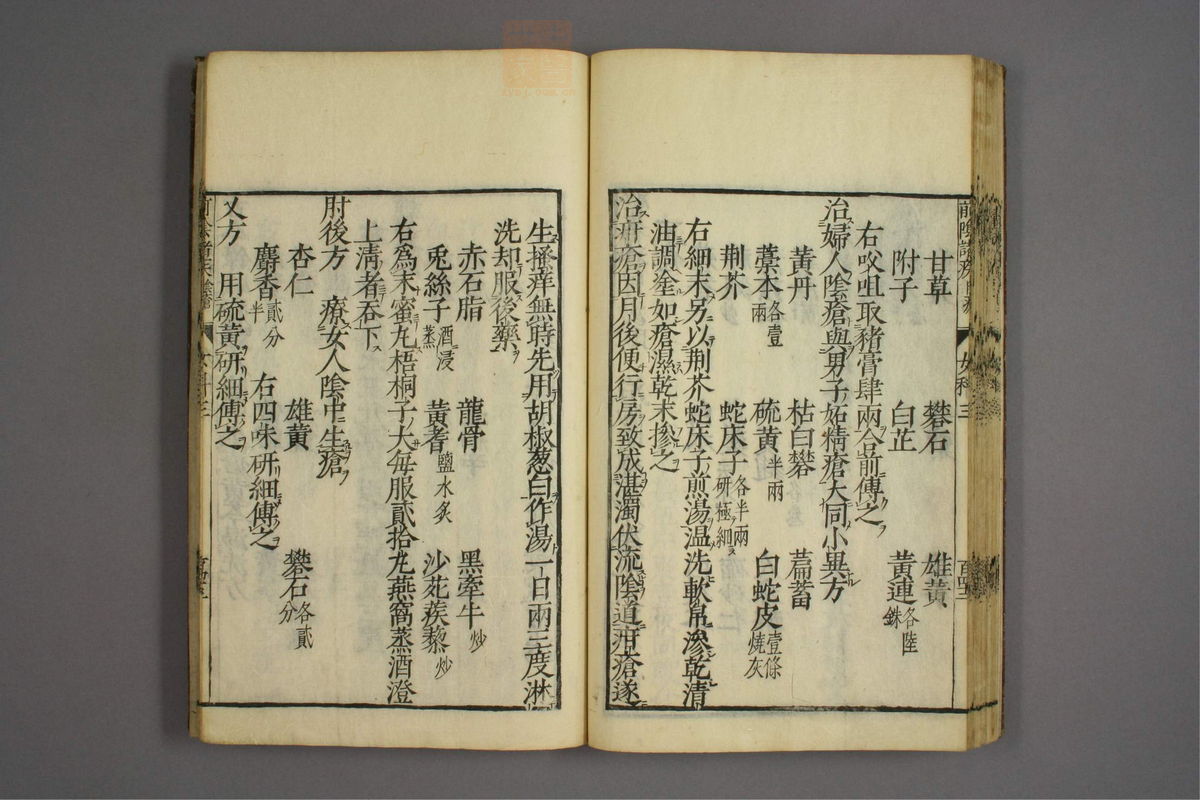 甘草 礬石 雄黃
附子 白芷 黃連各陸銖
右㕮咀取豬膏肆兩合煎傅之
治婦人陰瘡與男子妬精瘡大同小異方
黃丹 枯白礬 萹蓄
藁本各壹兩 硫黃半兩 白蛇皮壹條燒灰
荆芥 蛇床子各半兩研極細
右細末另以荆芥蛇床子煎湯温洗軟帛滲乾清
油調塗如瘡濕乾末摻之
治疳瘡因月後便行房致成湛濁伏流陰道疳瘡遂
生搔痒無時先用胡椒葱白作湯一日兩三度淋
洗却服後藥
赤石脂 龍骨 黑牽牛炒
兎絲子酒浸蒸 黃耆鹽水炙 沙苑蒺藜炒
右爲末蜜丸梧桐子大每服貳拾丸燕窩蒸酒澄
上清者吞下
肘後方 療女人陰中生瘡
杏仁 雄黃 礬石各貳分
麝香貳分半 右四味研細傅之
又方 用硫黃研細傅之
女科三